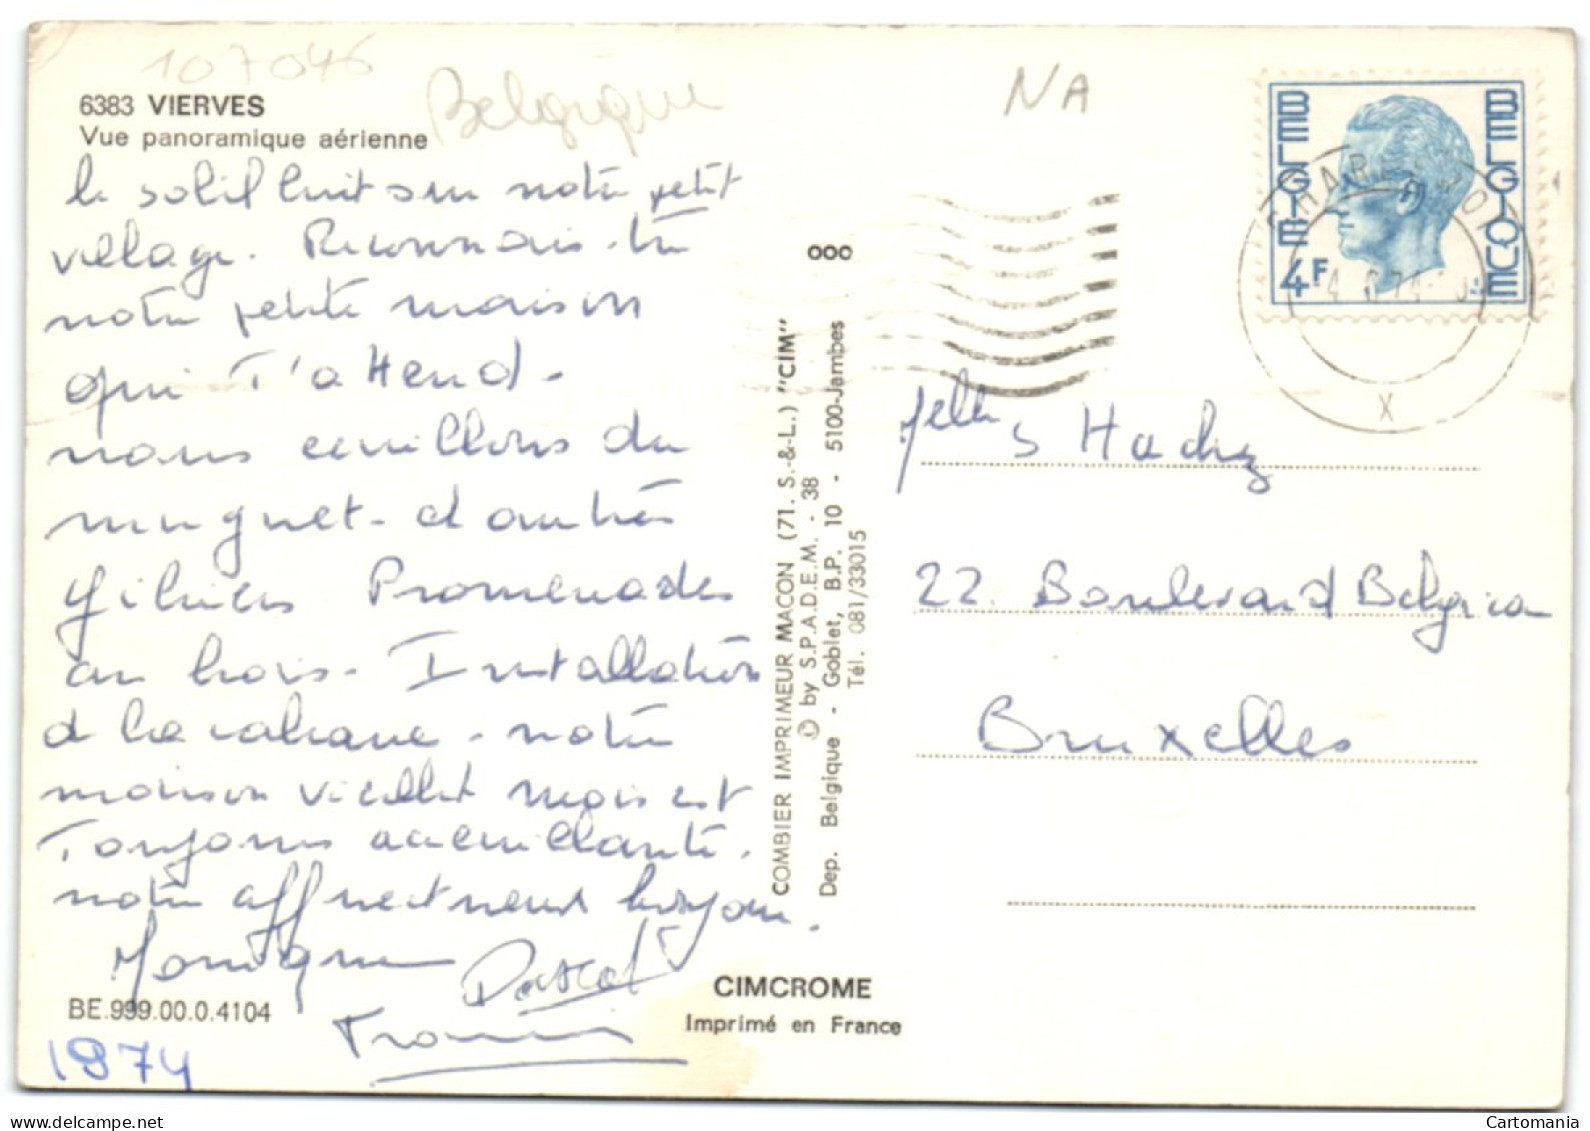 107046
Belgique
NA
6383 VIERVES
Vue panoramique aérienne
le soleil luit sur notre petit
village. Reconnais-tu
notre petite maison
qui t'attend -
nous cueillons du
muguet - d'autres
Promenades
au bois - Installation
d la cabane - notre
maison vieillit mais est
Toujours accueillante.
notre affectueux bonjour.
Monique Pascal
Francis
BE.999.00.0.4104
1974
COMBIER IMPRIMEUR MACON (71. S.-&-L.) "CIM"
© by S.P.A.D.E.M. - 38
Dep. Belgique - Goblet, B.P. 10 - 5100-Jambes
Tél. 081/33015
ooo
CIMCROME
Imprimé en France
BELGIE BELGIQUE
4F
CHARLEROI
X
Melles Hadry
22 Boulevard Belgica
Bruxelles
Cartomania